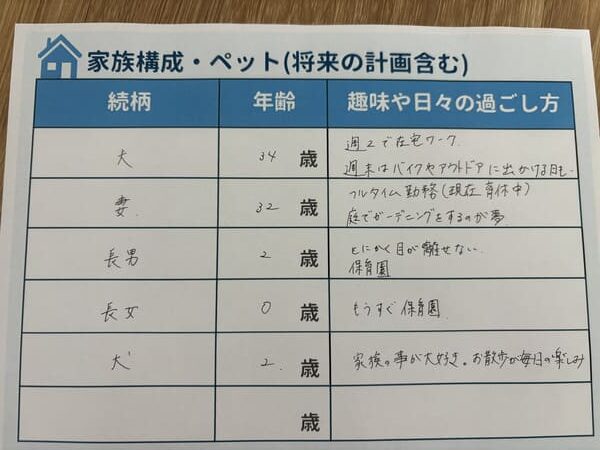 家族構成・ペット(将来の計画含む)
続柄 年齢 趣味や日々の過ごし方
夫 34 歳 週2で在宅ワーク.
週末はバイクやアウトドアに出かける日も.
妻. 32 歳 フルタイム勤務(現在育休中)
庭でガーデニングをするのが夢.
長男 2 歳 とにかく目が離せない.
保育園
長女 0 歳 もうすぐ保育園.
犬 2. 歳 家族の事が大好き。お散歩が毎日の楽しみ
歳